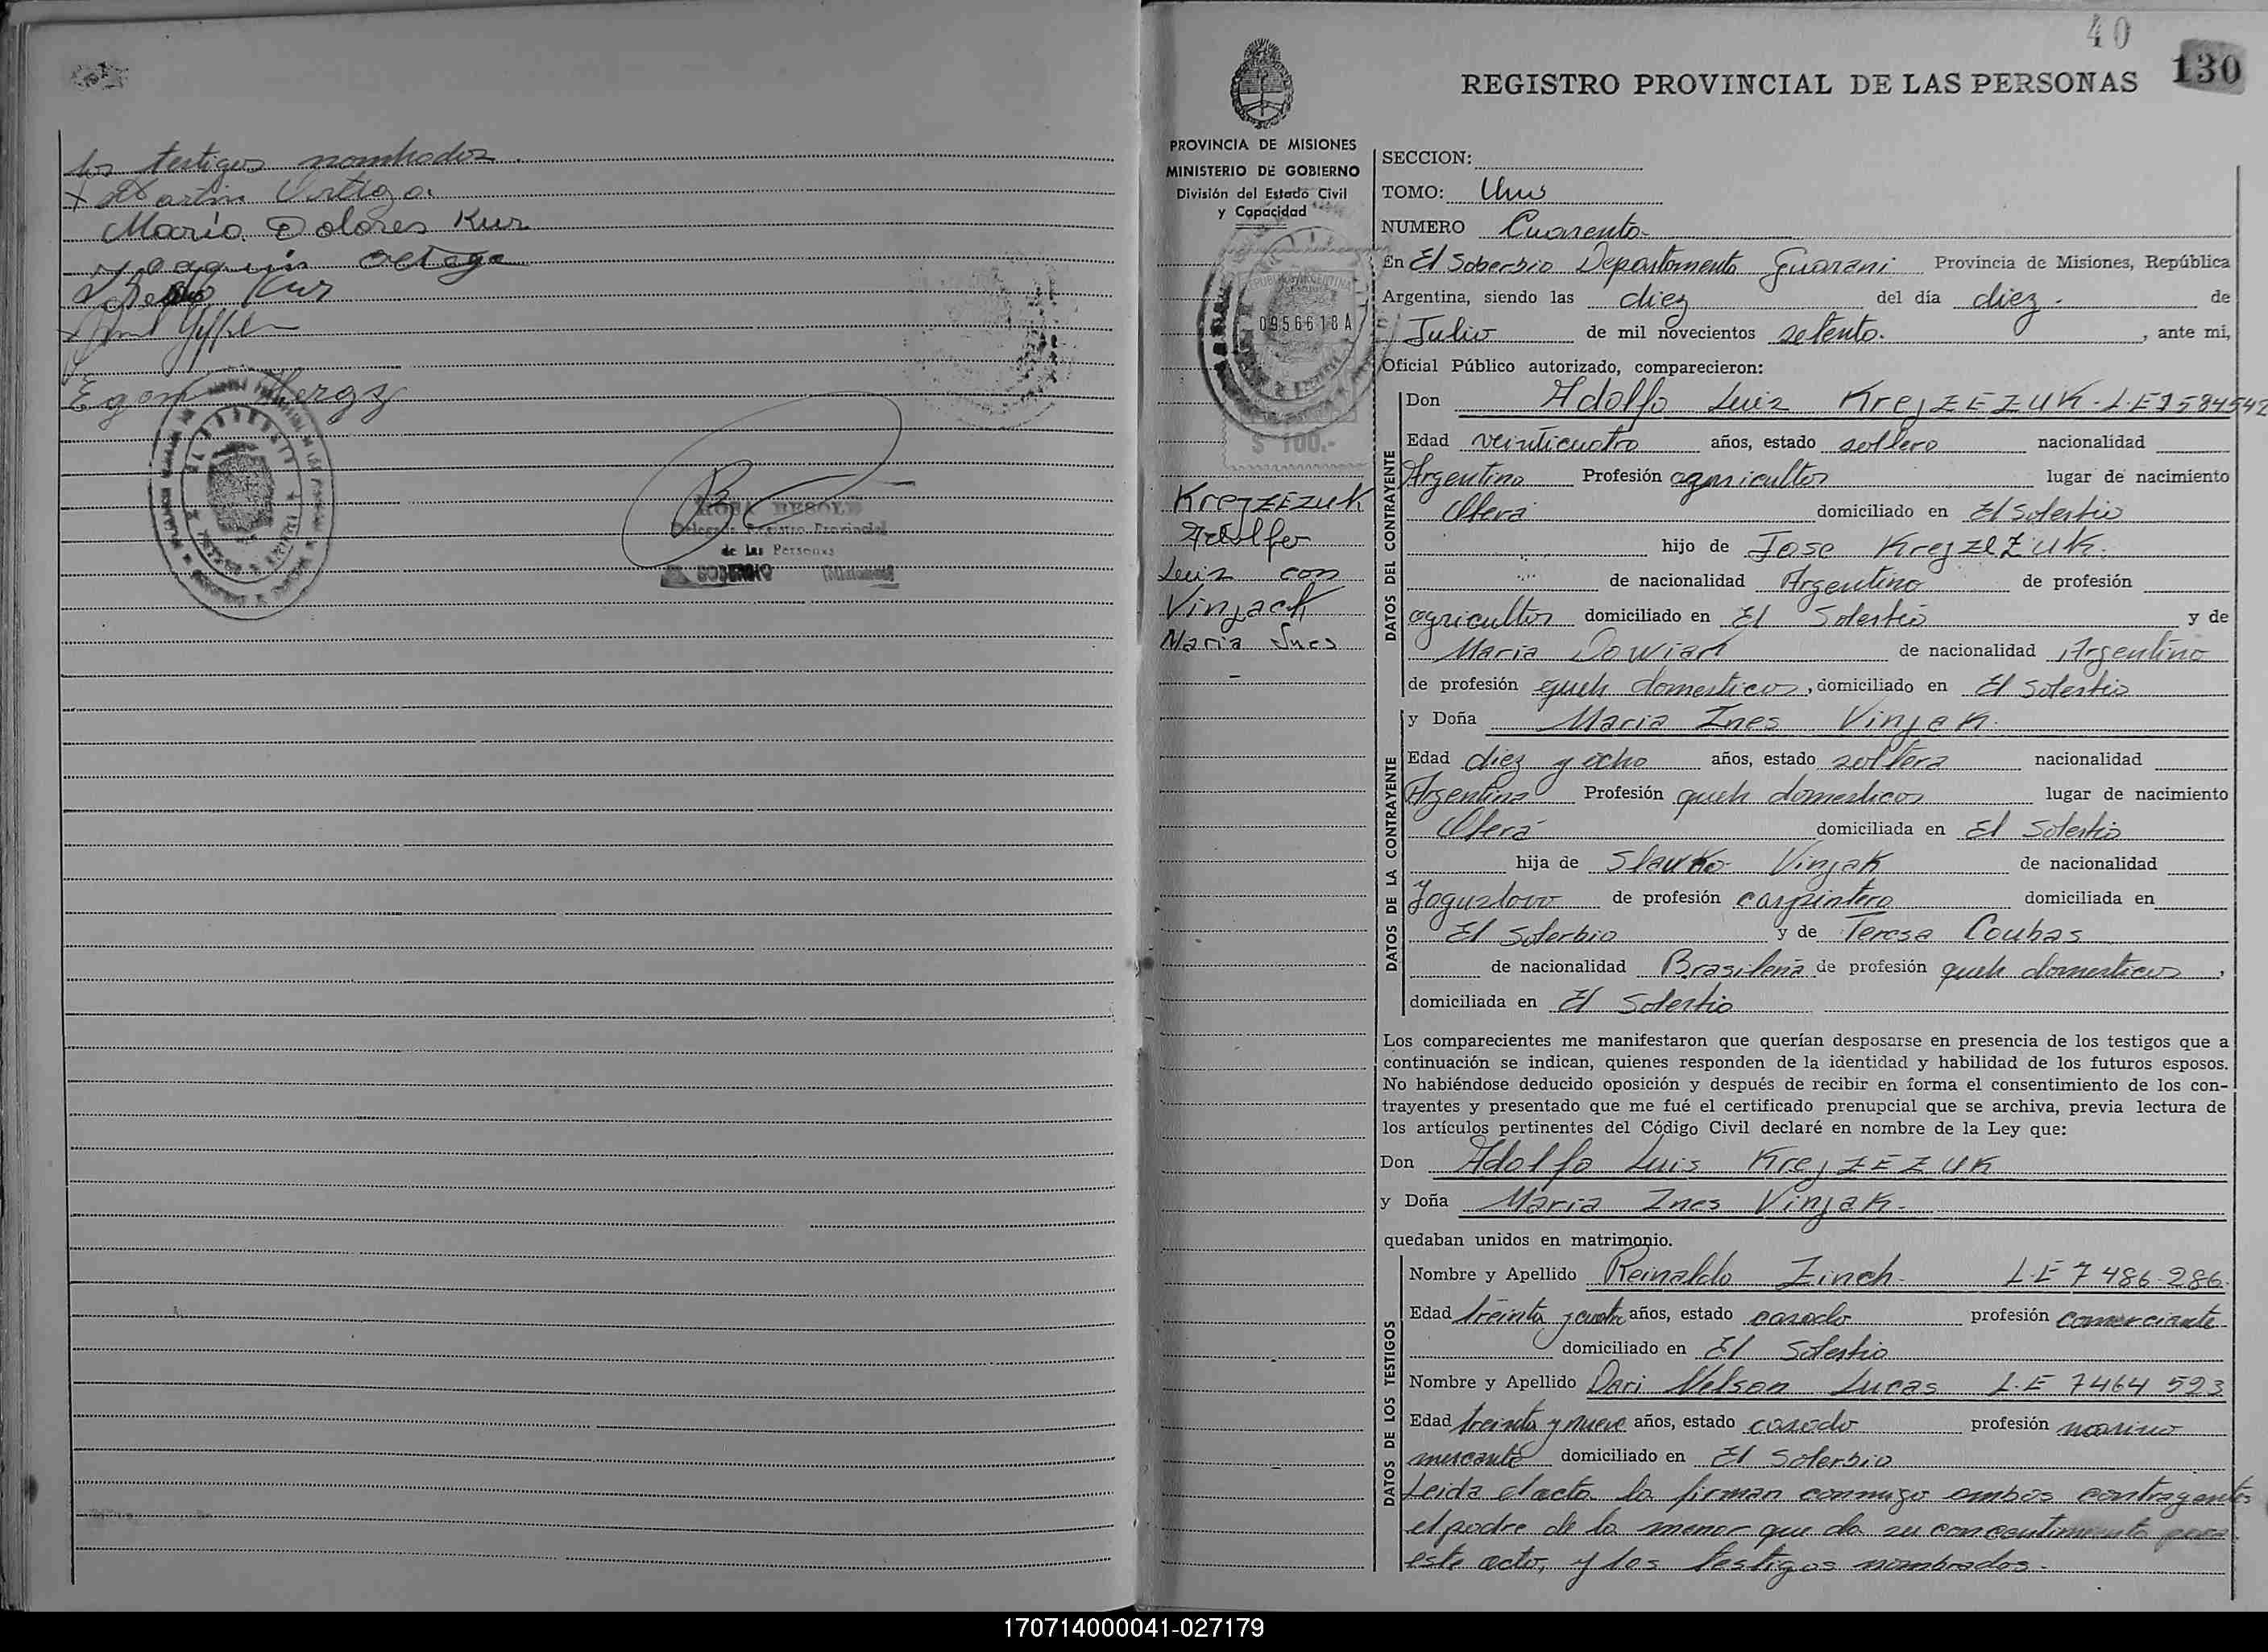 los testigos nombrados.
Martin Ortega
Maria Dolores Kur
Joaquin Ortega
Kur
Egon
ROSA BESOLD
Delegada Registro Provincial
de las Personas
SOBERBIO (Misiones)
40
130
REGISTRO PROVINCIAL DE LAS PERSONAS
PROVINCIA DE MISIONES
MINISTERIO DE GOBIERNO
División del Estado Civil
y Capacidad
REPUBLICA ARGENTINA
0956618A
$ 100.-
KrejZEZuk
Adolfo
Luis con
Vinjack
Maria Ines
SECCION:
TOMO: Uno
NUMERO Cuarenta-
En El Soberbio Departamento Guarani Provincia de Misiones, República
Argentina, siendo las diez del día diez - de
Julio de mil novecientos setenta. , ante mí,
Oficial Público autorizado, comparecieron:
DATOS DEL CONTRAYENTE
Don Adolfo Luis KrejZEZUK - L.E 7584542
Edad veinticuatro años, estado soltero nacionalidad
Argentina Profesión agricultor lugar de nacimiento
Oberá domiciliado en El Soberbio
hijo de Jose KrejzEZUK.
de nacionalidad Argentino de profesión
agricultor domiciliado en El Soberbio y de
Maria Dowian de nacionalidad Argentina
de profesión queh domesticos, domiciliado en El Soberbio
DATOS DE LA CONTRAYENTE
y Doña Maria Ines Vinjak.
Edad diez y ocho años, estado soltera nacionalidad
Argentina Profesión queh domesticos lugar de nacimiento
Oberá domiciliada en El Soberbio
hija de Slavko Vinjak de nacionalidad
Yoguslavo de profesión carpintero domiciliada en
El Soberbio y de Teresa Coubas
de nacionalidad Brasileña de profesión queh domesticos ,
domiciliada en El Soberbio
Los comparecientes me manifestaron que querían desposarse en presencia de los testigos que a
continuación se indican, quienes responden de la identidad y habilidad de los futuros esposos.
No habiéndose deducido oposición y después de recibir en forma el consentimiento de los con-
trayentes y presentado que me fué el certificado prenupcial que se archiva, previa lectura de
los artículos pertinentes del Código Civil declaré en nombre de la Ley que:
Don Adolfo Luis KrejZEZUK
y Doña Maria Ines Vinjak.
quedaban unidos en matrimonio.
DATOS DE LOS TESTIGOS
Nombre y Apellido Reinaldo Zinch - L.E 7486.286.
Edad treinta y cuatro años, estado casado profesión comerciante
domiciliado en El Soberbio
Nombre y Apellido Dari Nelson Lucas L.E 7464 523
Edad treinta y nueve años, estado casado profesión marino
mercante domiciliado en El Soberbio
Leida el acta la firman conmigo ambos contrayentes
el padre de la menor que da su concentimiento para
este acto, y los testigos nombrados.
170714000041-027179